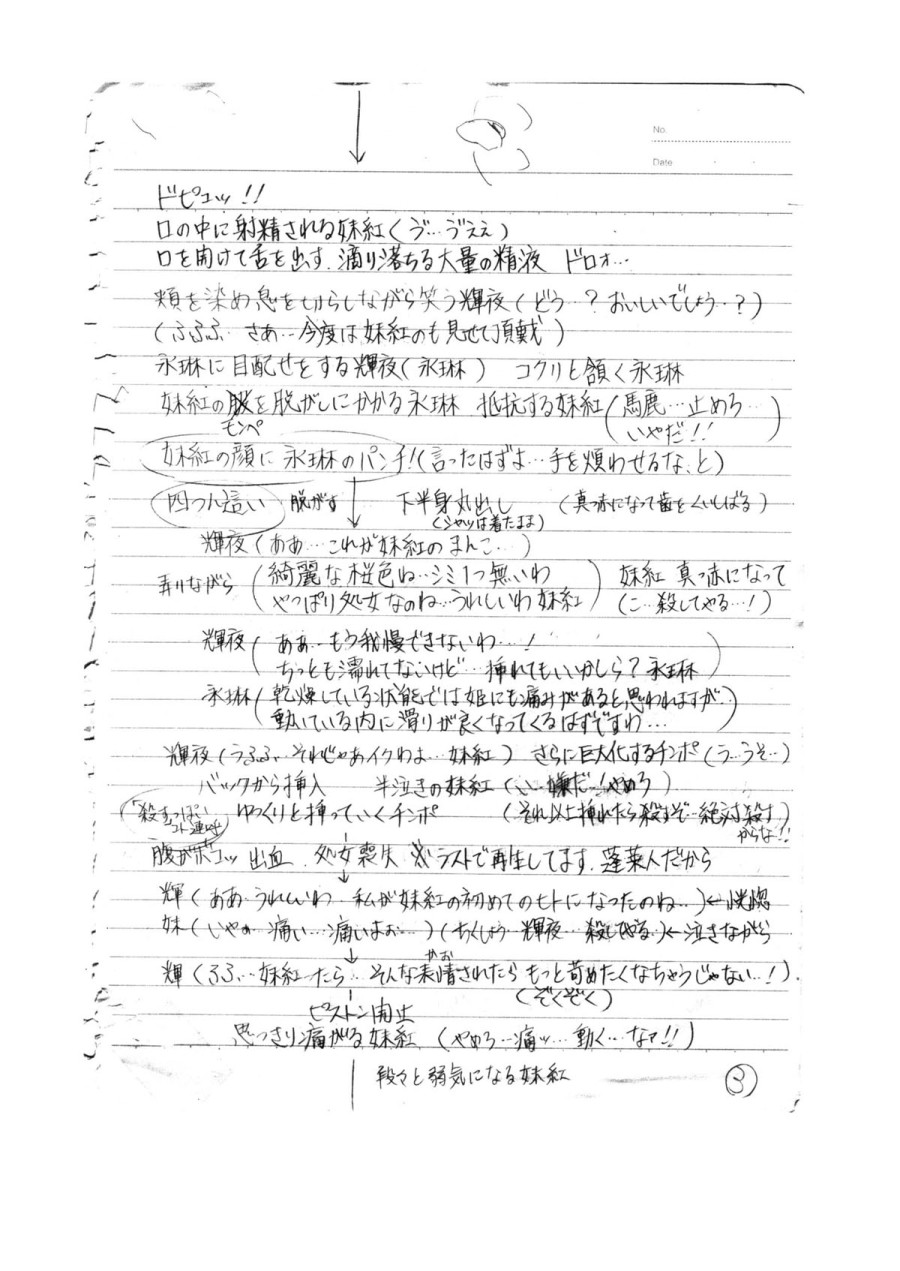 No.
Date
ドピュッ!!
口の中に射精される妹紅(ヴ…ヴええ)
口を開けて舌を出す.滴り落ちる大量の精液 ドロォ…
頬を染め息をしながら笑う輝夜(どう…?おいしいでしょう…?)
(ふふふ さあ…今度は妹紅のも見せて頂戴)
永琳に目配せをする輝夜(永琳) コクリと頷く永琳
妹紅のを脱がしにかかる永琳 抵抗する妹紅(馬鹿…止めろ…
モンペ
いやだ!!)
妹紅の顔に永琳のパンチ!(言ったはずよ…手を煩わせるな、と)
四つん這い 脱がす 下半身丸出し (真っ赤になって歯をくいしばる)
(シャツは着たまま)
輝夜(ああ…これが妹紅のまんこ…)
弄りながら (綺麗な桜色ね…シミ1つ無いわ 妹紅 真っ赤になって
やっぱり処女なのね…うれしいわ妹紅) (こ…殺してやる…!)
輝夜(ああ…もう我慢できないわ…!
ちっとも濡れてないけど…挿れてもいいかしら?永琳)
永琳(乾燥している状態では姫にも痛みがあると思われますが…
動いている内に滑りが良くなってくるはずですわ…
輝夜(うふふ…それじゃあイクわよ…妹紅) さらに巨大化するチンポ(う…うそ…)
バックから挿入 半泣きの妹紅(い…嫌だ…やめろ)
(「殺すっぽいコト連呼) ゆっくりと挿っていくチンポ (それ以上挿れたら殺すぞ…絶対殺す
からな!!)
腹がボコッ 出血 処女喪失 ※ラストで再生してます.蓬莱人だから
輝(ああ…うれしいわ…私が妹紅の初めてのヒトになったのね…)←恍惚
妹(いやぁ 痛い…痛いよぉ…)(ちくしょう…輝夜…殺してやる…)←泣きながら
輝(ふふ…妹紅ったら…そんな表情されたらもっと苛めたくなっちゃうじゃない…!)
かお
(ぞくぞく)
ピストン開始
思っきり痛がる妹紅 (やめろ…痛ッ…動く…なァ!!)
段々と弱気になる妹紅
③